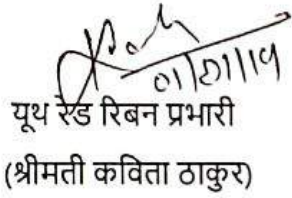 01/01/19
यूथ रेड रिबन प्रभारी
(श्रीमती कविता ठाकुर)